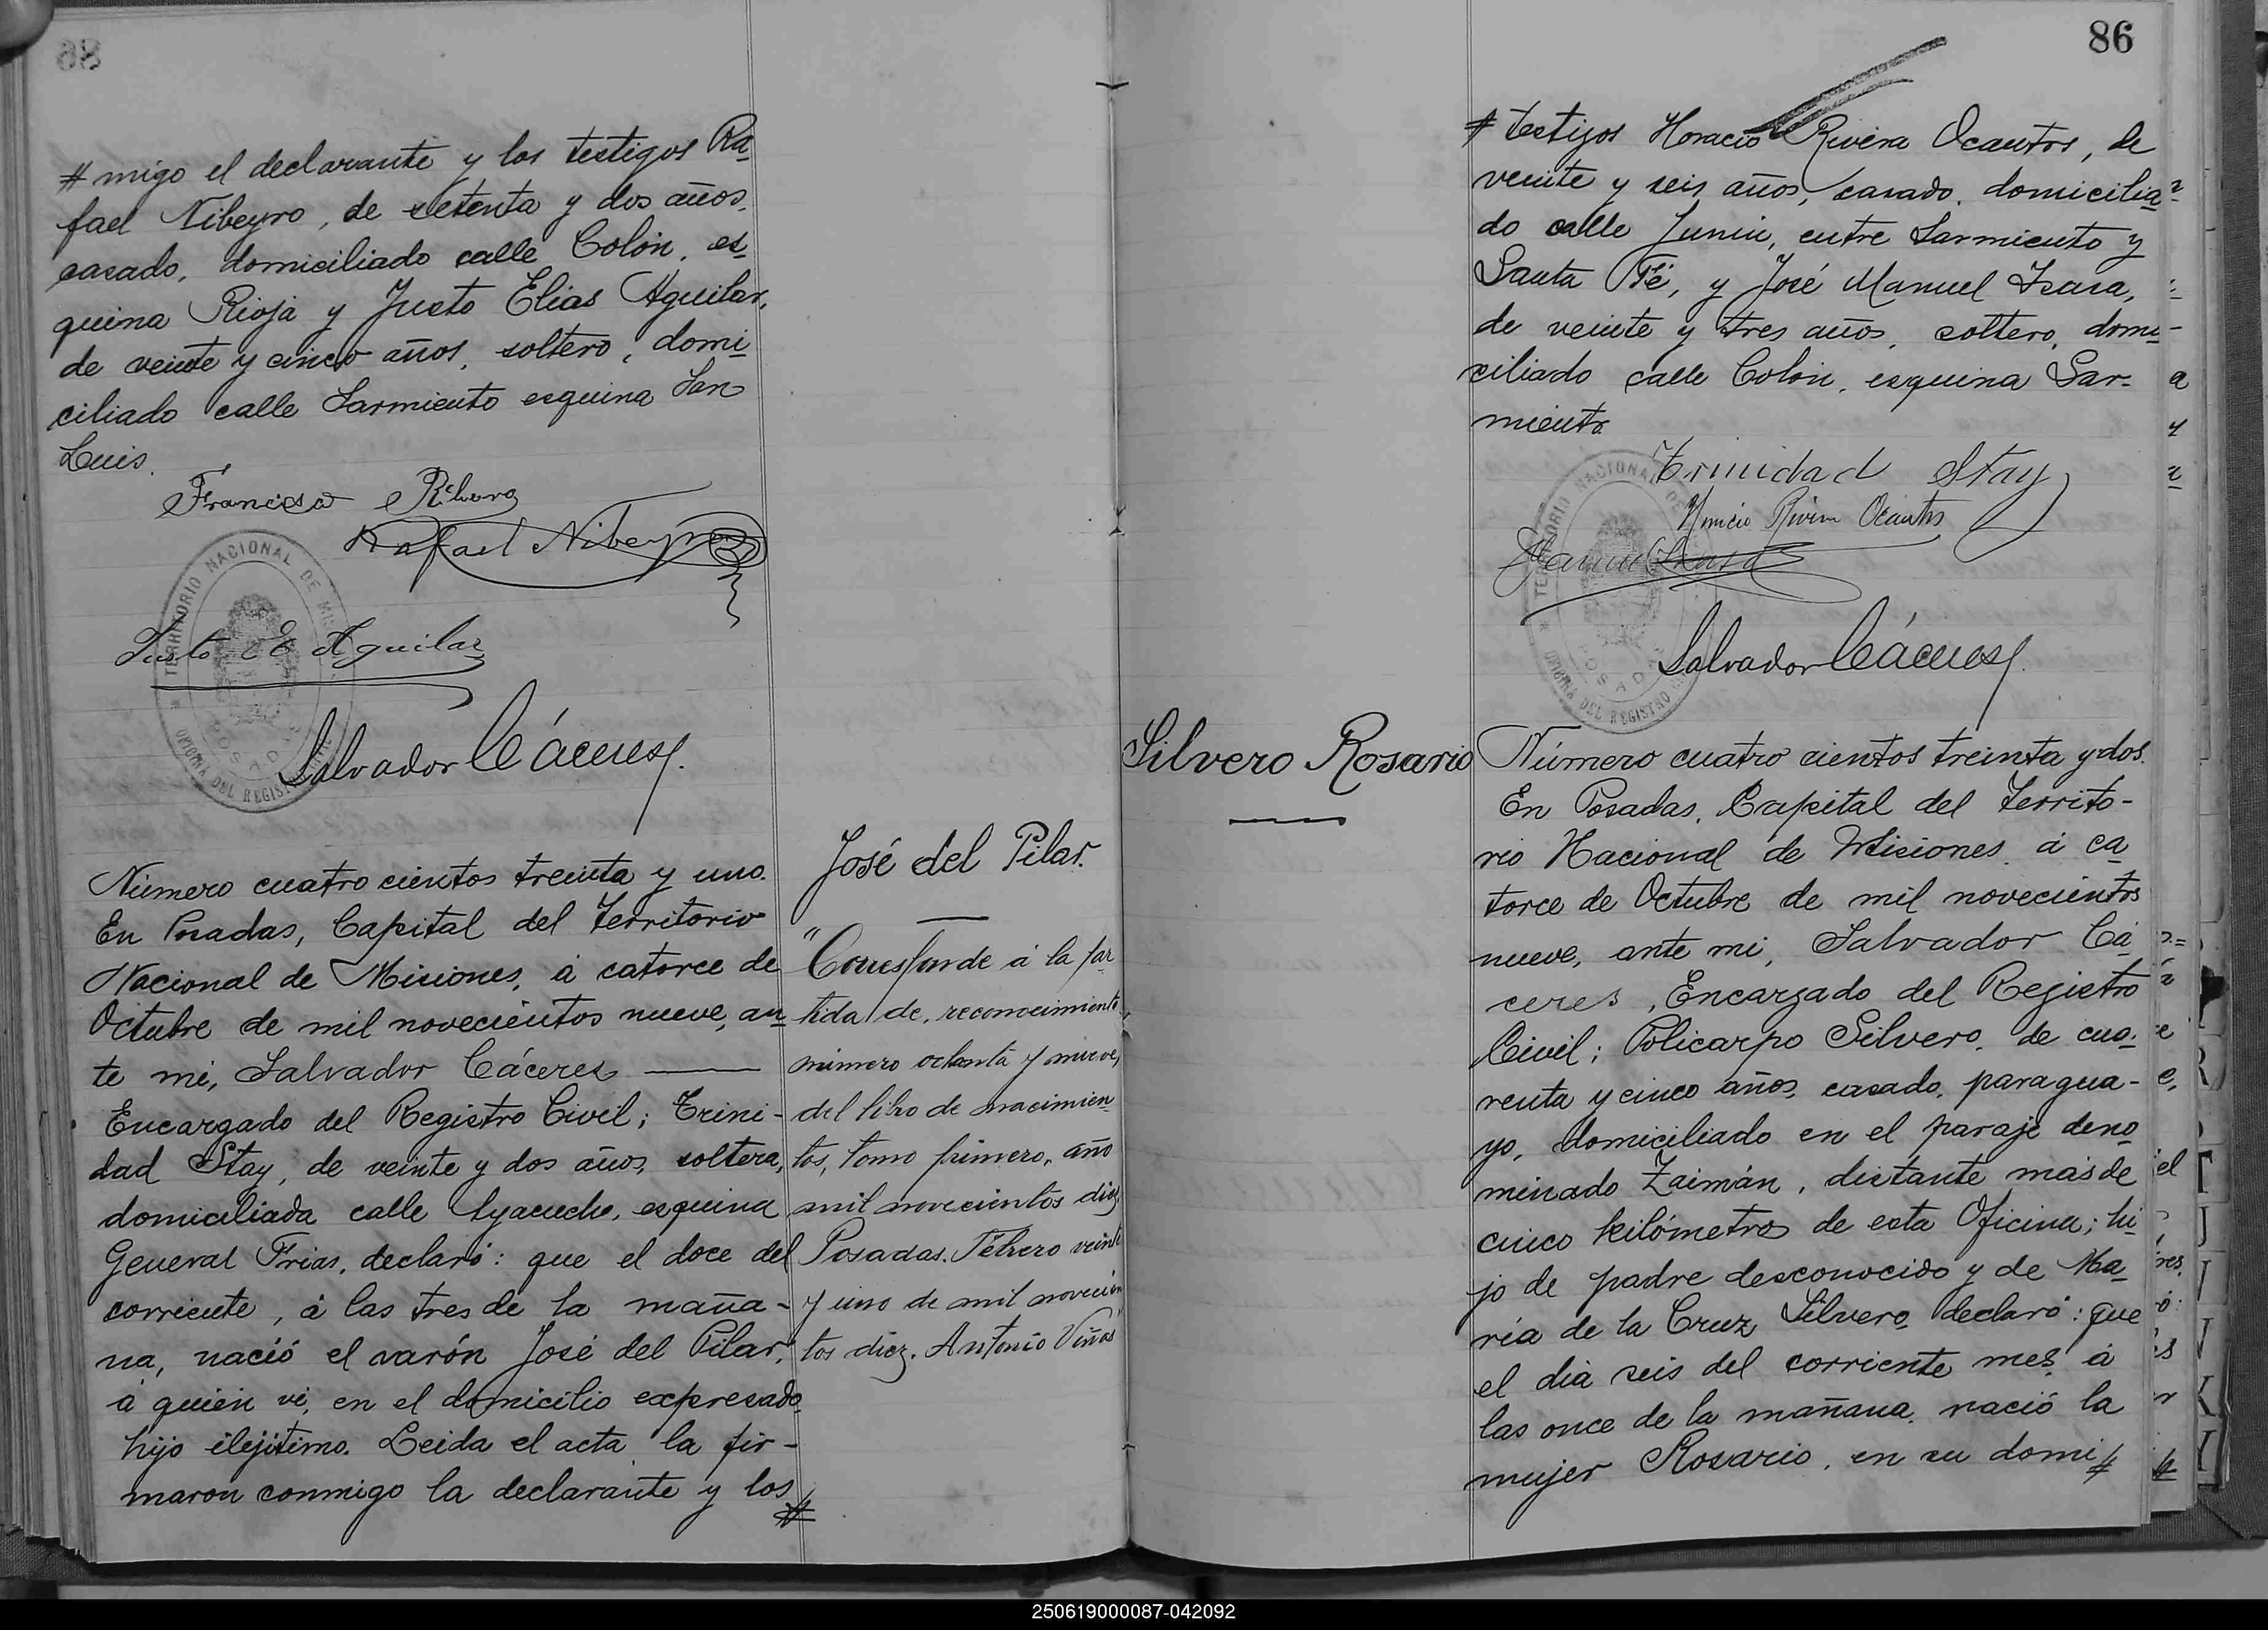 # migo el declarante y los testigos Ra
fael Nibeyro, de setenta y dos años,
casado, domiciliado calle Colón, es
quina Rioja y Justo Elias Aguilar,
de veinte y cinco años, soltero, domi
ciliado calle Sarmiento esquina San
Luis.
Francisco Ribero
Rafael Nibeyro
TERRITORIO NACIONAL DE MISIONES
POSADAS
OFICINA DEL REGISTRO
Justo E Aguilar
Salvador Cáceres
Número cuatro cientos treinta y uno.
En Posadas, Capital del Territorio
Nacional de Misiones, á catorce de
Octubre de mil novecientos nueve, an
te mi, Salvador Cáceres
Encargado del Registro Civil; Trini-
dad Stay, de veinte y dos años, soltera,
domiciliada calle Ayacucho, esquina
General Frias, declaró: que el doce del
corriente, á las tres de la maña-
na, nació el varón José del Pilar,
á quién vi, en el domicilio expresado,
hijo ilejitimo. Leida el acta la fir-
maron conmigo la declarante y los
#
José del Pilar.
"Corresponde á la par
tida de reconocimiento
número ochenta y nueve,
del libro de nacimien
tos, tomo primero, año
mil novecientos diez,
Posadas. Febrero veinte
y uno de mil novecien
tos diez. Antonio Viñas"
86
# testigos Horacio Rivera Ocantos, de
veinte y seis años, casado, domicilia
do calle Junin, entre Sarmiento y
Santa Fé, y José Manuel Isasa,
de veinte y tres años, soltero, domi
ciliado calle Colón, esquina Sar-
miento.
Trinidad Stay
Horacio Rivera Ocantos
JManuel Isasa
TERRITORIO NACIONAL DE
POSADAS
OFICINA DEL REGISTRO
Salvador Cáceres
Silvero Rosario
Número cuatro cientos treinta y dos.
En Posadas, Capital del Territo-
rio Nacional de Misiones, á ca
torce de Octubre de mil novecientos
nueve, ante mi, Salvador Cá
ceres, Encargado del Registro
Civil; Policarpo Silvero, de cua-
renta y cinco años, casado, paragua-
yo, domiciliado en el paraje deno
minado Zaimán, distante más de
cinco kilómetros de esta Oficina; hi
jo de padre desconocido y de Ma
ria de la Cruz Silvero, declaró: que
el dia seis del corriente mes, á
las once de la mañana, nació la
mujer Rosario, en su domi#
250619000087-042092